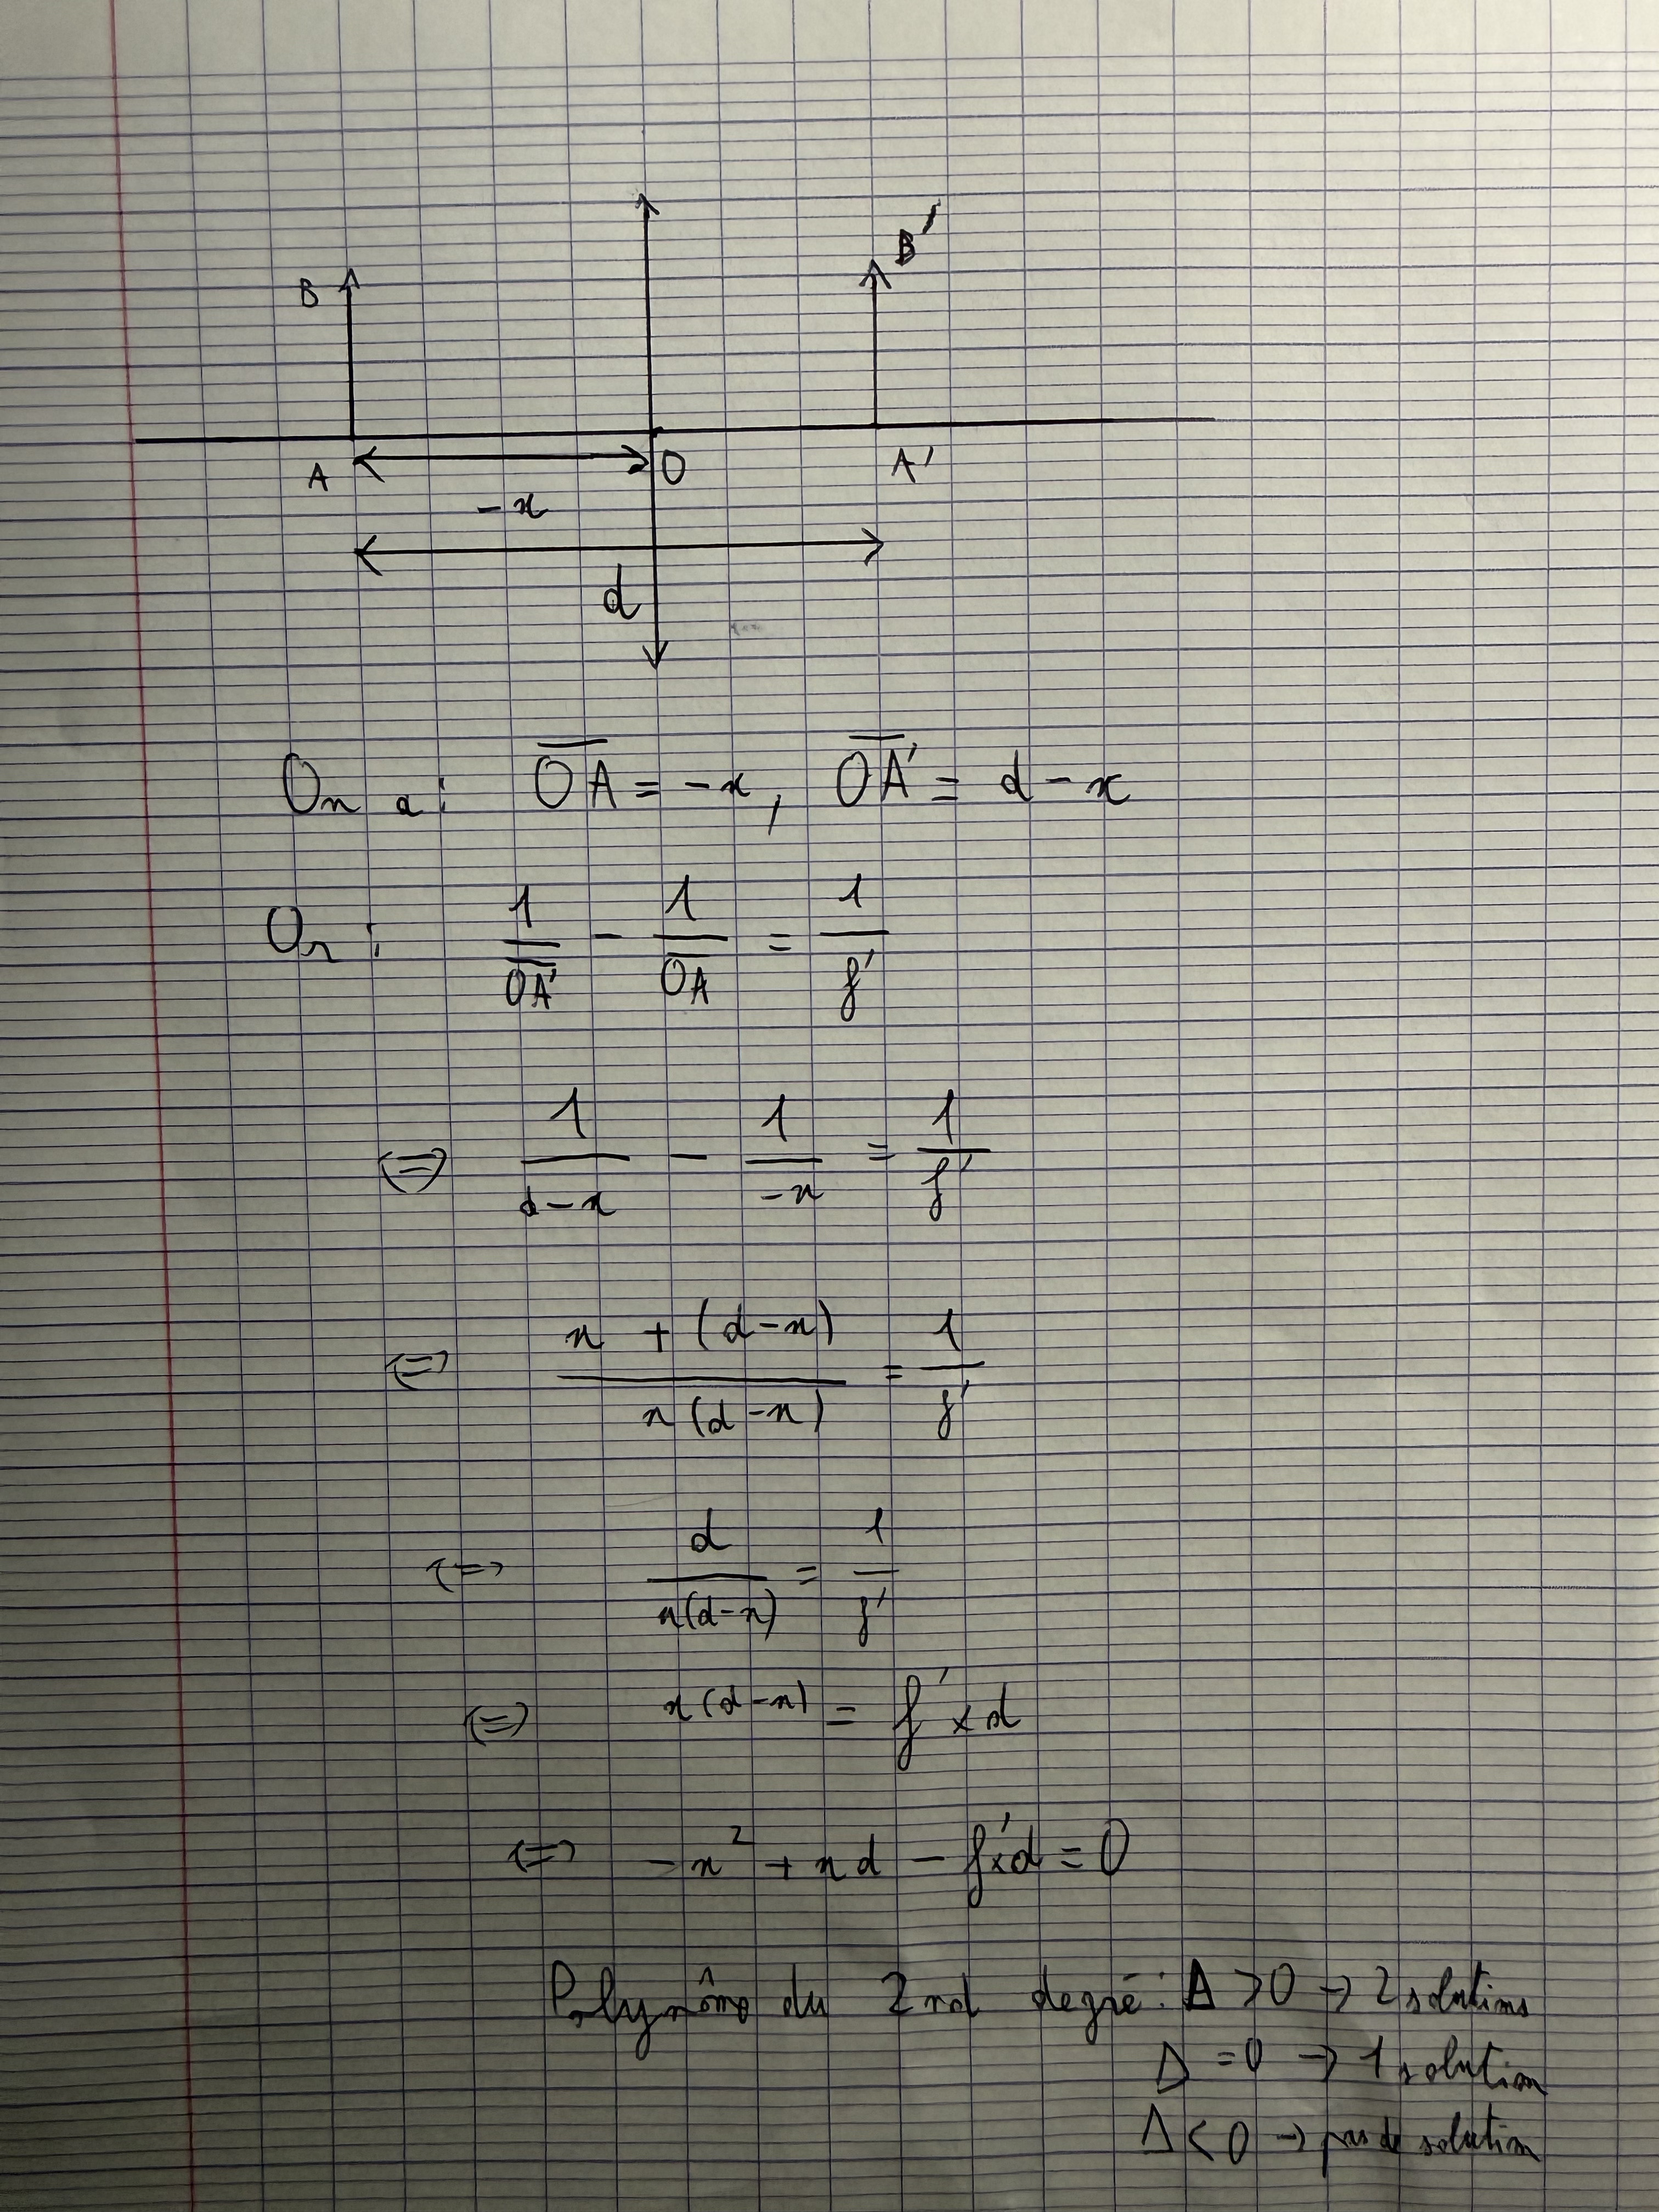 B B'
A O A'
-x
d
On a : OA̅ = -x, OA'̅ = d - x
Or : 1/OA'̅ - 1/OA̅ = 1/f'
⇔ 1/(d-x) - 1/(-x) = 1/f'
⇔ (x + (d-x))/(x(d-x)) = 1/f'
⇔ d/(x(d-x)) = 1/f'
⇔ x(d-x) = f' × d
⇔ -x² + xd - f'×d = 0
Polynôme du 2nd degré : Δ > 0 → 2 solutions
Δ = 0 → 1 solution
Δ < 0 → pas de solution